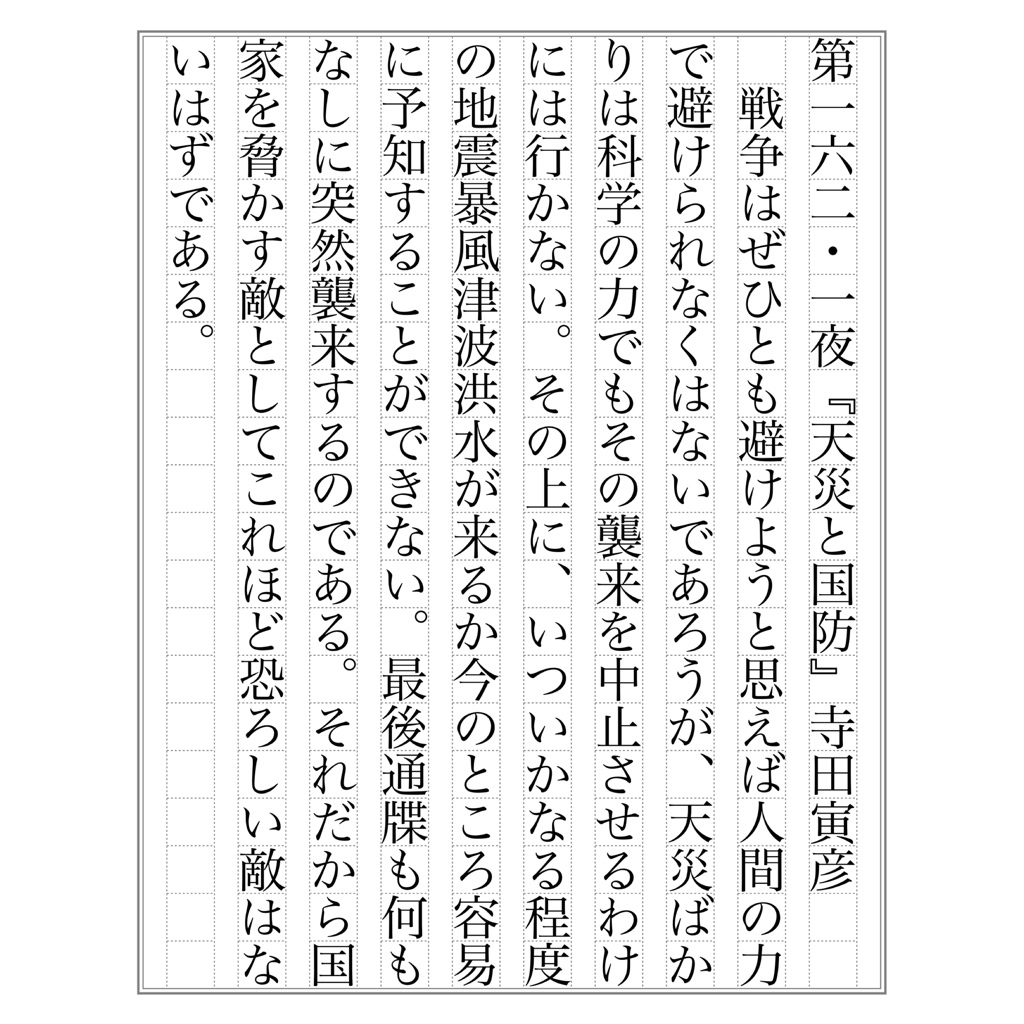 第一六二・一夜『天災と国防』寺田寅彦
　戦争はぜひとも避けようと思えば人間の力
で避けられなくはないであろうが、天災ばか
りは科学の力でもその襲来を中止させるわけ
には行かない。その上に、いついかなる程度
の地震暴風津波洪水が来るか今のところ容易
に予知することができない。最後通牒も何も
なしに突然襲来するのである。それだから国
家を脅かす敵としてこれほど恐ろしい敵はな
いはずである。